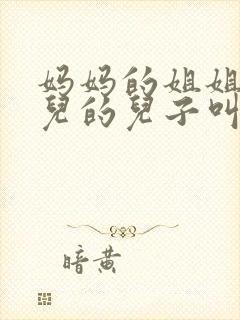 妈妈的姐姐
兒的兒子叫
暗黄